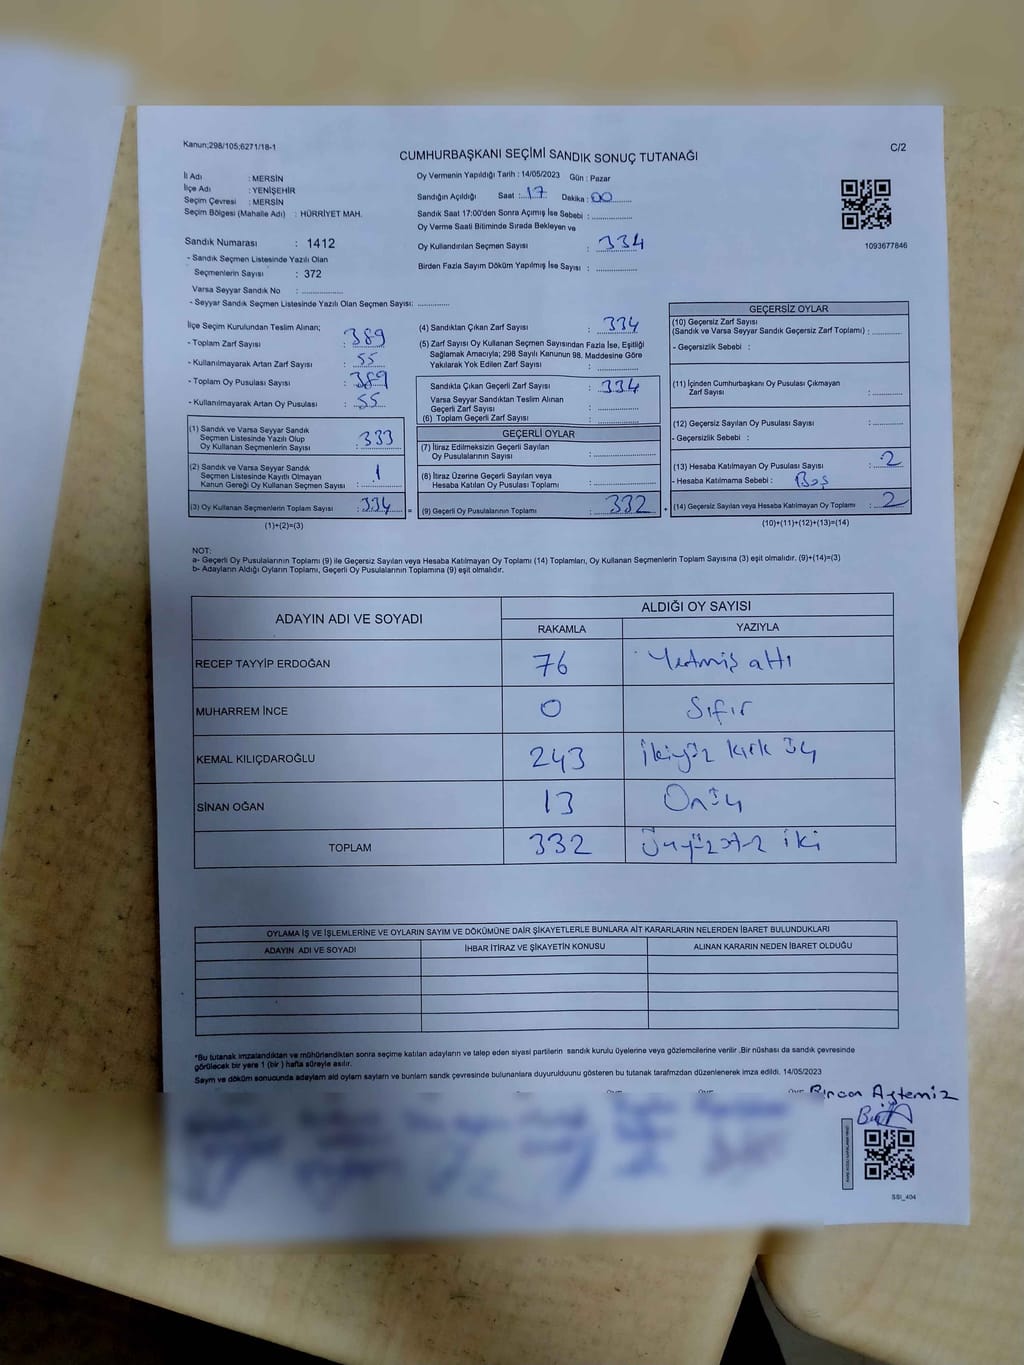 Kanun;298/105;6271/18-1
C/2
CUMHURBAŞKANI SEÇİMİ SANDIK SONUÇ TUTANAĞI
İl Adı : MERSİN
İlçe Adı : YENİŞEHİR
Seçim Çevresi : MERSİN
Seçim Bölgesi (Mahalle Adı) : HÜRRİYET MAH.
Sandık Numarası : 1412
- Sandık Seçmen Listesinde Yazılı Olan
Seçmenlerin Sayısı : 372
Varsa Seyyar Sandık No :
- Seyyar Sandık Seçmen Listesinde Yazılı Olan Seçmen Sayısı:
Oy Vermenin Yapıldığı Tarih : 14/05/2023 Gün : Pazar
Sandığın Açıldığı Saat : 17 Dakika : 00
Sandık Saat 17:00'den Sonra Açımış İse Sebebi :
Oy Verme Saati Bitiminde Sırada Bekleyen ve
Oy Kullandırılan Seçmen Sayısı : 334
Birden Fazla Sayım Döküm Yapılmış İse Sayısı :
1093677846
İlçe Seçim Kurulundan Teslim Alınan;
- Toplam Zarf Sayısı : 389
- Kullanılmayarak Artan Zarf Sayısı : 55
- Toplam Oy Pusulası Sayısı : 389
- Kullanılmayarak Artan Oy Pusulası : 55
(1) Sandık ve Varsa Seyyar Sandık
Seçmen Listesinde Yazılı Olup
Oy Kullanan Seçmenlerin Sayısı : 333
(2) Sandık ve Varsa Seyyar Sandık
Seçmen Listesinde Kayıtlı Olmayan
Kanun Gereği Oy Kullanan Seçmen Sayısı : 1
(3) Oy Kullanan Seçmenlerin Toplam Sayısı : 334 =
(1)+(2)=(3)
(4) Sandıktan Çıkan Zarf Sayısı : 334
(5) Zarf Sayısı Oy Kullanan Seçmen Sayısından Fazla İse, Eşitliği
Sağlamak Amacıyla; 298 Sayılı Kanunun 98. Maddesine Göre
Yakılarak Yok Edilen Zarf Sayısı :
Sandıkta Çıkan Geçerli Zarf Sayısı : 334
Varsa Seyyar Sandıktan Teslim Alınan
Geçerli Zarf Sayısı :
(6) Toplam Geçerli Zarf Sayısı :
GEÇERLİ OYLAR
(7) İtiraz Edilmeksizin Geçerli Sayılan
Oy Pusulalarının Sayısı :
(8) İtiraz Üzerine Geçerli Sayılan veya
Hesaba Katılan Oy Pusulası Toplamı :
(9) Geçerli Oy Pusulalarının Toplamı : 332 +
GEÇERSİZ OYLAR
(10) Geçersiz Zarf Sayısı
(Sandık ve Varsa Seyyar Sandık Geçersiz Zarf Toplamı) :
- Geçersizlik Sebebi :
(11) İçinden Cumhurbaşkanı Oy Pusulası Çıkmayan
Zarf Sayısı :
(12) Geçersiz Sayılan Oy Pusulası Sayısı :
- Geçersizlik Sebebi :
(13) Hesaba Katılmayan Oy Pusulası Sayısı : 2
- Hesaba Katılmama Sebebi : Boş
(14) Geçersiz Sayılan veya Hesaba Katılmayan Oy Toplamı : 2
(10)+(11)+(12)+(13)=(14)
NOT:
a- Geçerli Oy Pusulalarının Toplamı (9) ile Geçersiz Sayılan veya Hesaba Katılmayan Oy Toplamı (14) Toplamları, Oy Kullanan Seçmenlerin Toplam Sayısına (3) eşit olmalıdır. (9)+(14)=(3)
b- Adayların Aldığı Oyların Toplamı, Geçerli Oy Pusulalarının Toplamına (9) eşit olmalıdır.
ADAYIN ADI VE SOYADI ALDIĞI OY SAYISI
RAKAMLA YAZIYLA
RECEP TAYYİP ERDOĞAN 76 Yetmiş altı
MUHARREM İNCE 0 Sıfır
KEMAL KILIÇDAROĞLU 243 İkiyüz kırk üç
SİNAN OĞAN 13 Onüç
TOPLAM 332 Üçyüzotuz iki
OYLAMA İŞ VE İŞLEMLERİNE VE OYLARIN SAYIM VE DÖKÜMÜNE DAİR ŞİKAYETLERLE BUNLARA AİT KARARLARIN NELERDEN İBARET BULUNDUKLARI
ADAYIN ADI VE SOYADI İHBAR İTİRAZ VE ŞİKAYETİN KONUSU ALINAN KARARIN NEDEN İBARET OLDUĞU
*Bu tutanak imzalandıktan ve mühürlendikten sonra seçime katılan adayların ve talep eden siyasi partilerin sandık kurulu üyelerine veya gözlemcilerine verilir .Bir nüshası da sandık çevresinde
görülecek bir yere 1 (bir ) hafta süreyle asılır.
Sayım ve döküm sonucunda adayların aldığı oyların sayıları ve bunların sandık çevresinde bulunanlara duyurulduğunu gösteren bu tutanak tarafımızdan düzenlenerek imza edildi. 14/05/2023
SSI_404